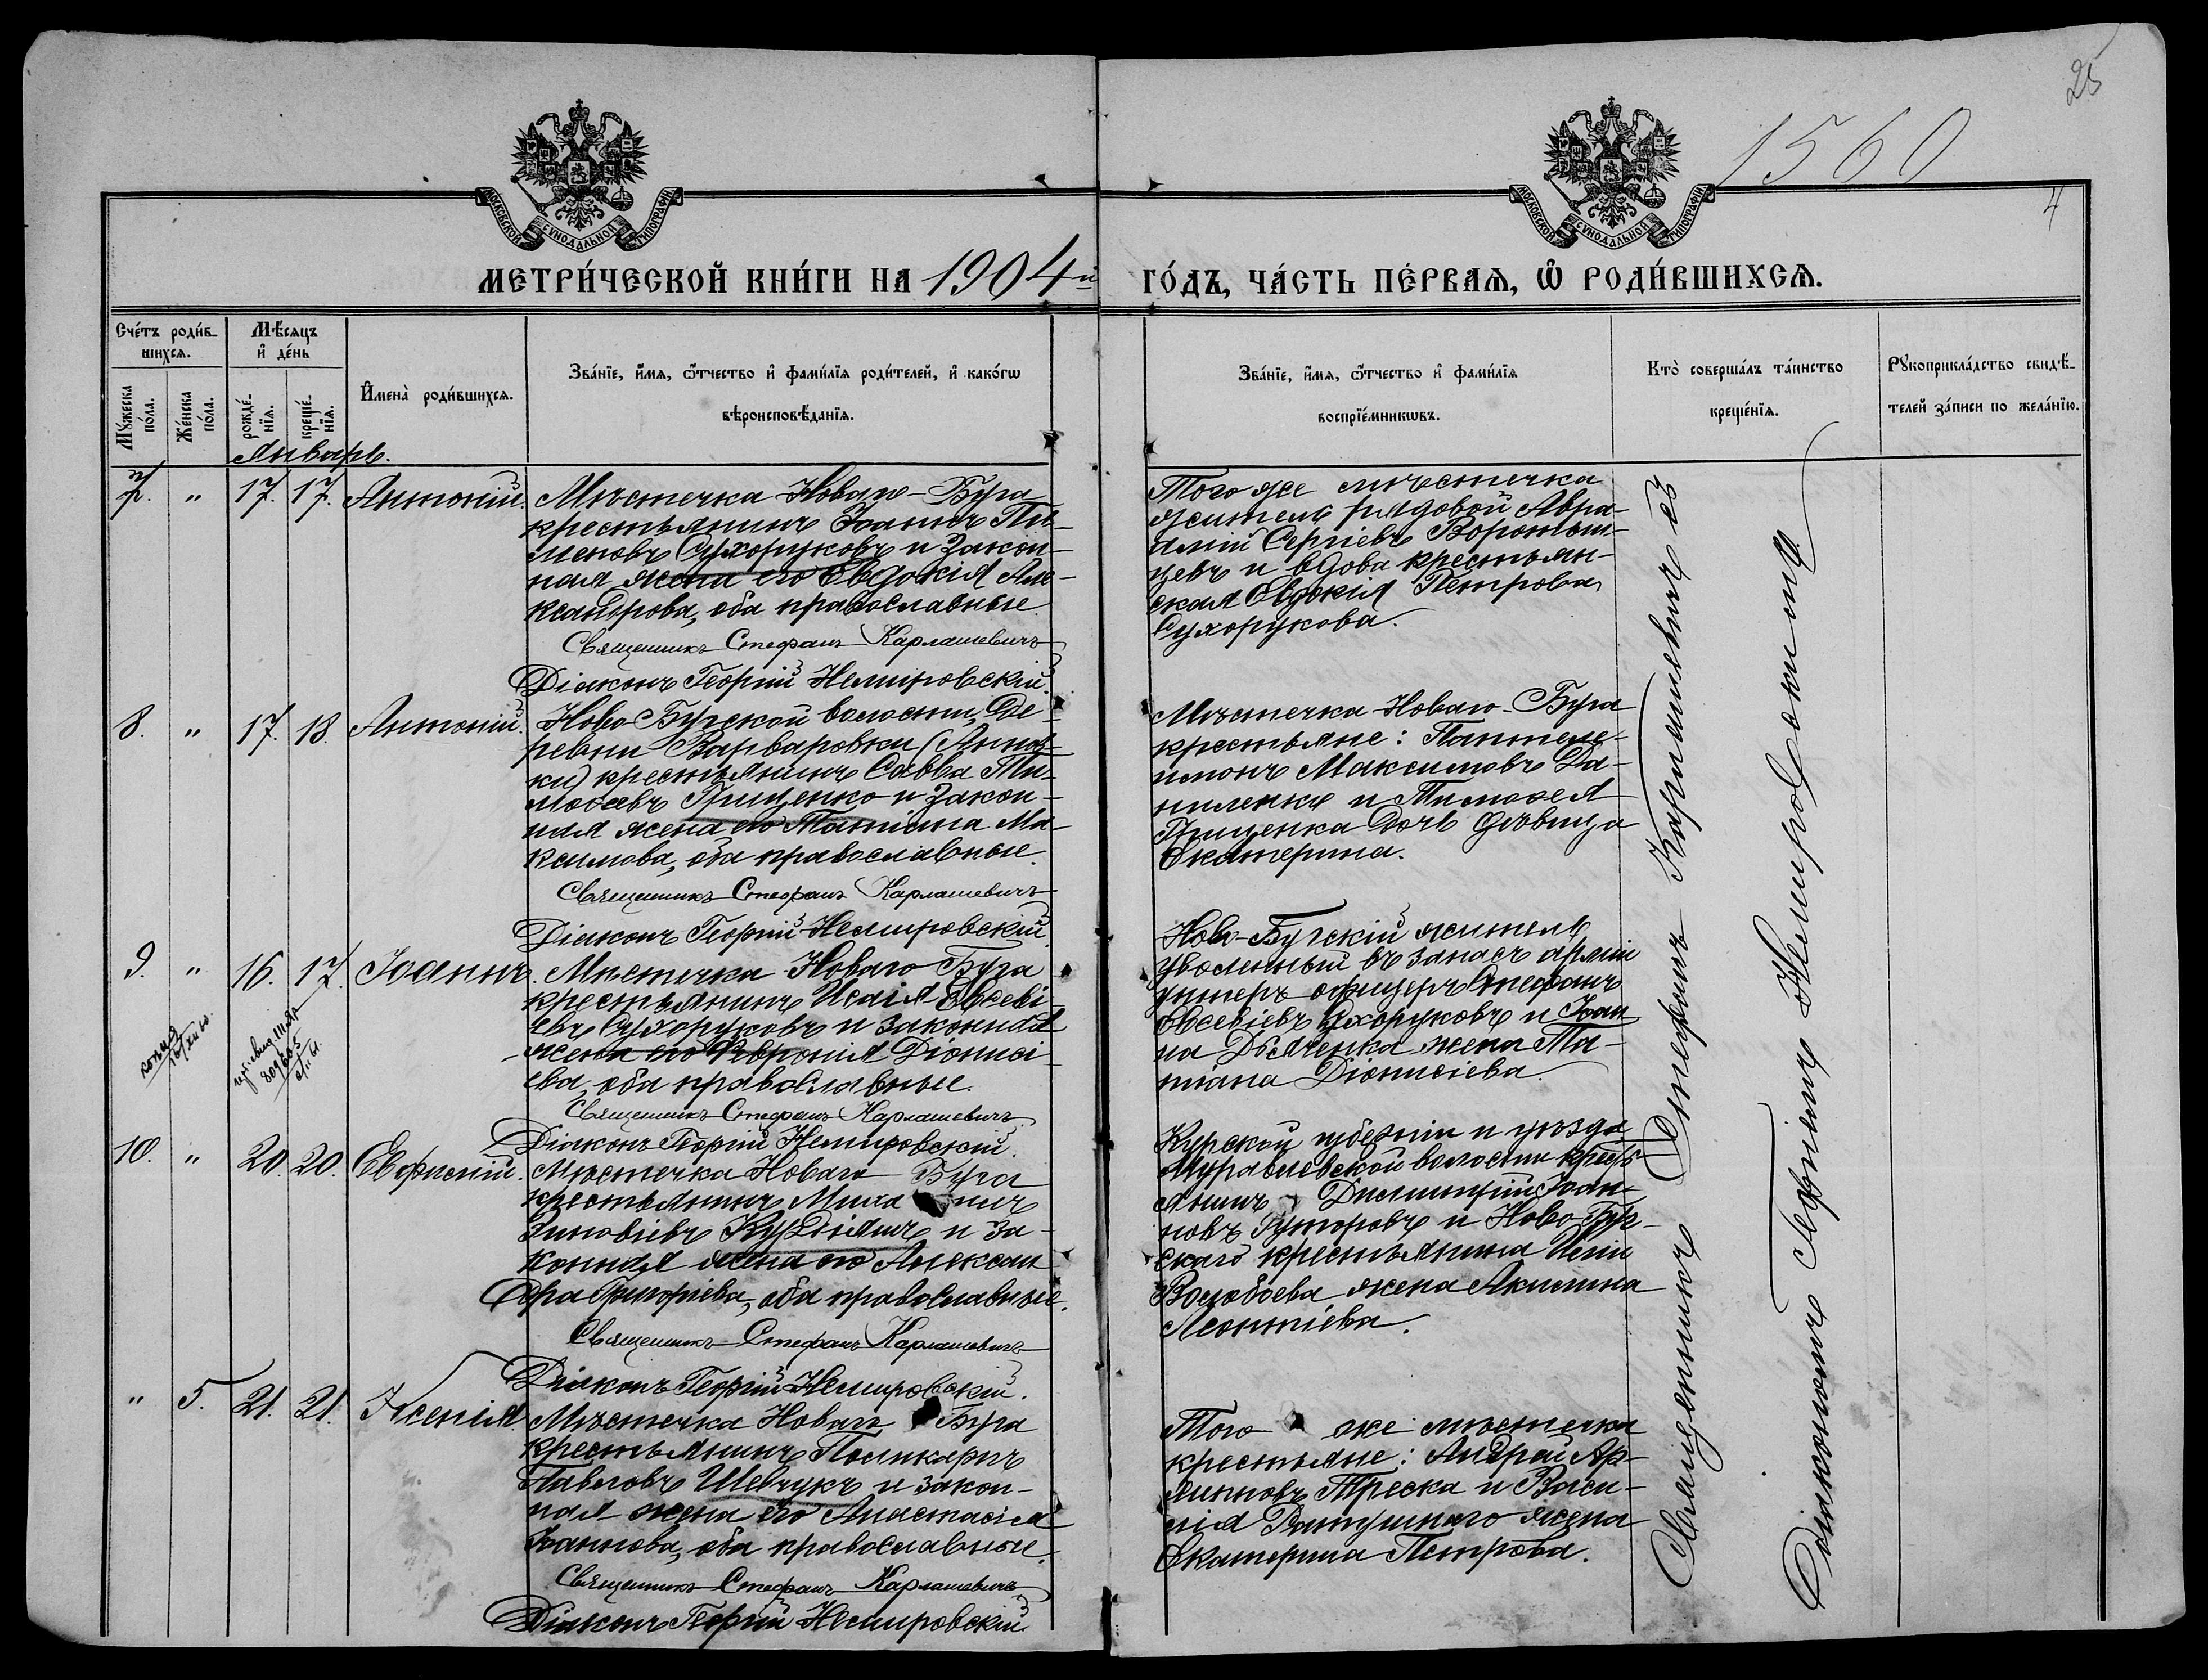 25
1560
4
МОСКОВСКОЙ СѴНОДАЛЬНОЙ ТИПОГРАФІИ
МОСКОВСКОЙ СѴНОДАЛЬНОЙ ТИПОГРАФІИ
МЕТРИ́ЧЕСКОЙ КНИ́ГИ НА 1904й ГО́ДЪ, ЧА́СТЬ ПЕ́РВАѦ, Ѡ҆ РОДИ́ВШИХСѦ.
Сче́тъ роди́в-
шихсѧ.
Мꙋ́жеска по́ла.
Же́нска по́ла.
Мѣ́сяцъ и҆ де́нь
рожде́-
нїѧ.
креще́-
нїѧ.
И҆мена̀ роди́вшихсѧ.
Зва́нїе, и҆́мѧ, ѻ҆́тчество и҆ фами́лїѧ роди́телей, и҆ како́гѡ
вѣроисповѣ́данїѧ.
Зва́нїе, и҆́мѧ, ѻ҆́тчество и҆ фами́лїѧ
воспрїе́мникѡвъ.
Кто̀ соверша́лъ та́инство
креще́нїѧ.
Рꙋкоприкла́дство свидѣ́-
телей за́писи по жела́нїю.
Январь.
7. " 17. 17. Антоній.
Мѣстечка Новаго-Буга
крестьянинъ Іоаннъ Пи-
меновъ Сухоруковъ и закон-
ная жена его Евдокія Але-
ксандрова, оба православные.
Священникъ Стефанъ Карлашевичъ
Діаконъ Георгій Немировскій.
Того же мѣстечка
житель рядовой Авра-
амій Сергіевъ Воротын-
цевъ и вдова крестьян-
ская Евдокія Петрова
Сухорукова.
8. " 17. 18. Антоній.
Ново Бугской волости, де-
ревни Варваровки (Аннов-
ки) крестьянинъ Савва Ти-
моѳеевъ Грищенко и закон-
ная жена его Татіана Ма-
ксимова, оба православные.
Священникъ Стефанъ Карлашевичъ
Діаконъ Георгій Немировскій.
Мѣстечка Новаго-Буга
крестьяне: Пантеле-
имонъ Максимовъ Да-
ниленко и Тимоѳея
Грищенка дочь дѣвица
Екатерина.
9. " 16. 17. Іоаннъ.
Мѣстечка Новаго Буга
крестьянинъ Исаія Евсеві-
евъ Сухоруковъ и законная
жена его Ѳевронія Діонисі-
ева, оба православные.
Священникъ Стефанъ Карлашевичъ
Діаконъ Георгій Немировскій.
Ново-Бугскій житель
уволенный въ запасъ арміи
унтеръ офицеръ Стефанъ
Евсевіевъ Сухоруковъ и Іоан-
на Дьяченка жена Та-
тіана Діонисіева.
копия
10. " 20. 20. Евфимій.
Мѣстечка Новаго Буга
крестьянинъ
Зиновіевъ и за-
конная жена его Алексан-
дра Григоріева, оба православные.
Священникъ Стефанъ Карлашевичъ
Діаконъ Георгій Немировскій.
Курской губерніи и уѣзда
волости кресть-
янинъ Димитрій Іоан-
новъ Гуторовъ и Ново-Буг-
скаго крестьянина
жена Акилина
Леонтіева.
" 5. 21. 21. Ксенія.
Мѣстечка Новаго Буга
крестьянинъ Поликарпъ
Павловъ Шевчукъ и закон-
ная жена его Анастасія
Іоаннова, оба православные.
Священникъ Стефанъ Карлашевичъ
Діаконъ Георгій Немировскій
Того же мѣстечка
крестьяне: Андрей
Треска и Васи-
лія жена
Екатерина Петрова.
Священникъ Стефанъ Карлашевичъ съ
Діакономъ Георгіемъ Немировскимъ